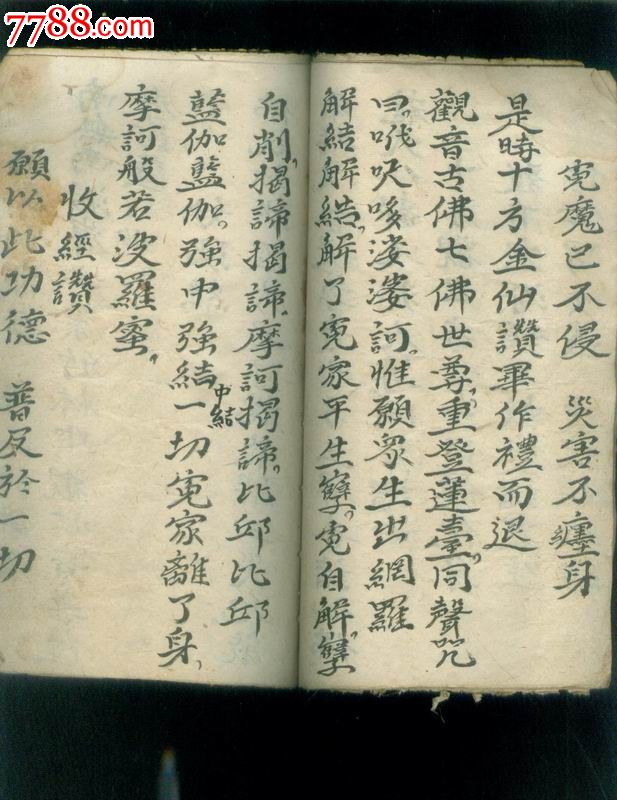 7788.com
中国收藏热线
寃魔已不侵 災害不纏身
是時十方金仙讚畢作禮而退
觀音古佛七佛世尊重登蓮臺同聲咒
曰哦呎哆婆婆訶惟願眾生出網羅
解結解結解了寃家平生孽寃自解孽
自削揭諦揭諦摩訶揭諦比邱比邱
藍伽藍伽強中強結一切寃家離了身
中結
摩訶般若波羅蜜
收經讚
願以此功德 普及於一切